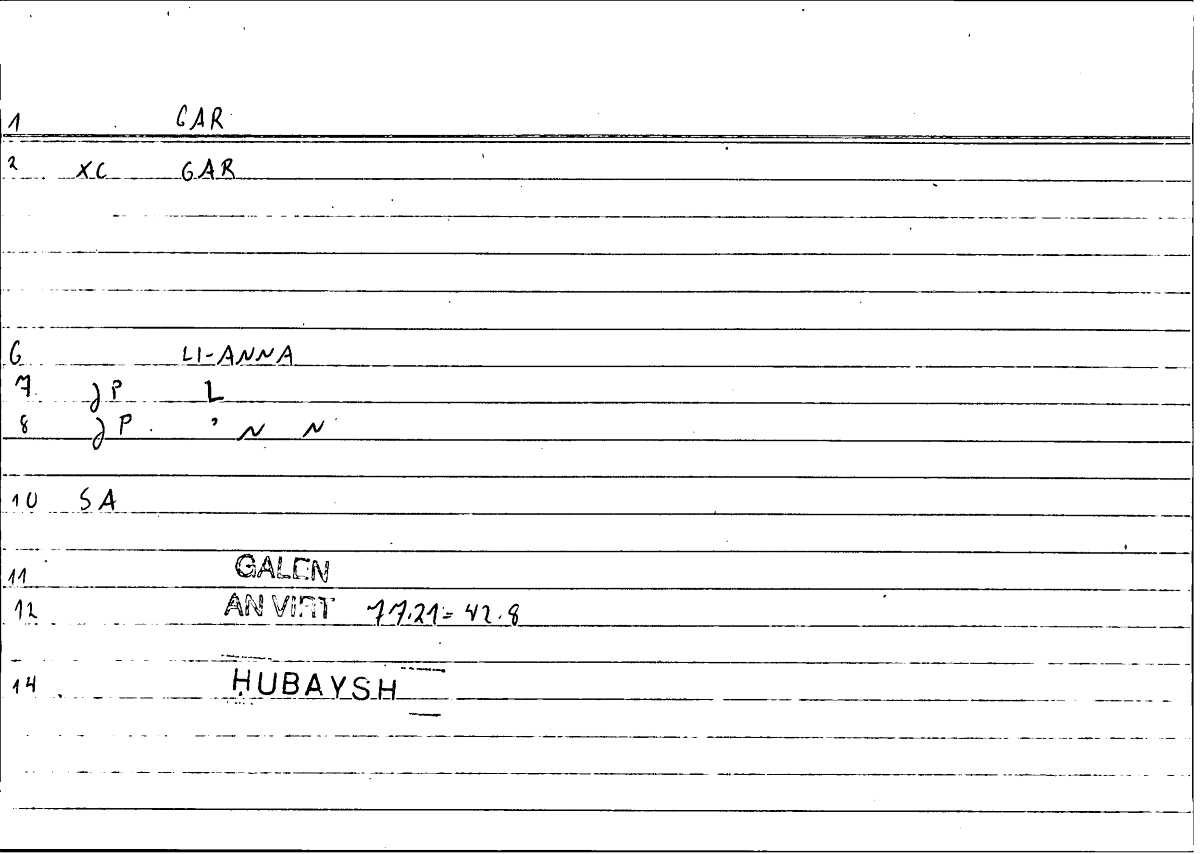 1 GAR
2 XC GAR
6 LI-ANNA
7 JP L
8 JP ' N N
10 SA
11 GALEN
12 AN VIRT 77.21= 42.8
14 HUBAYSH